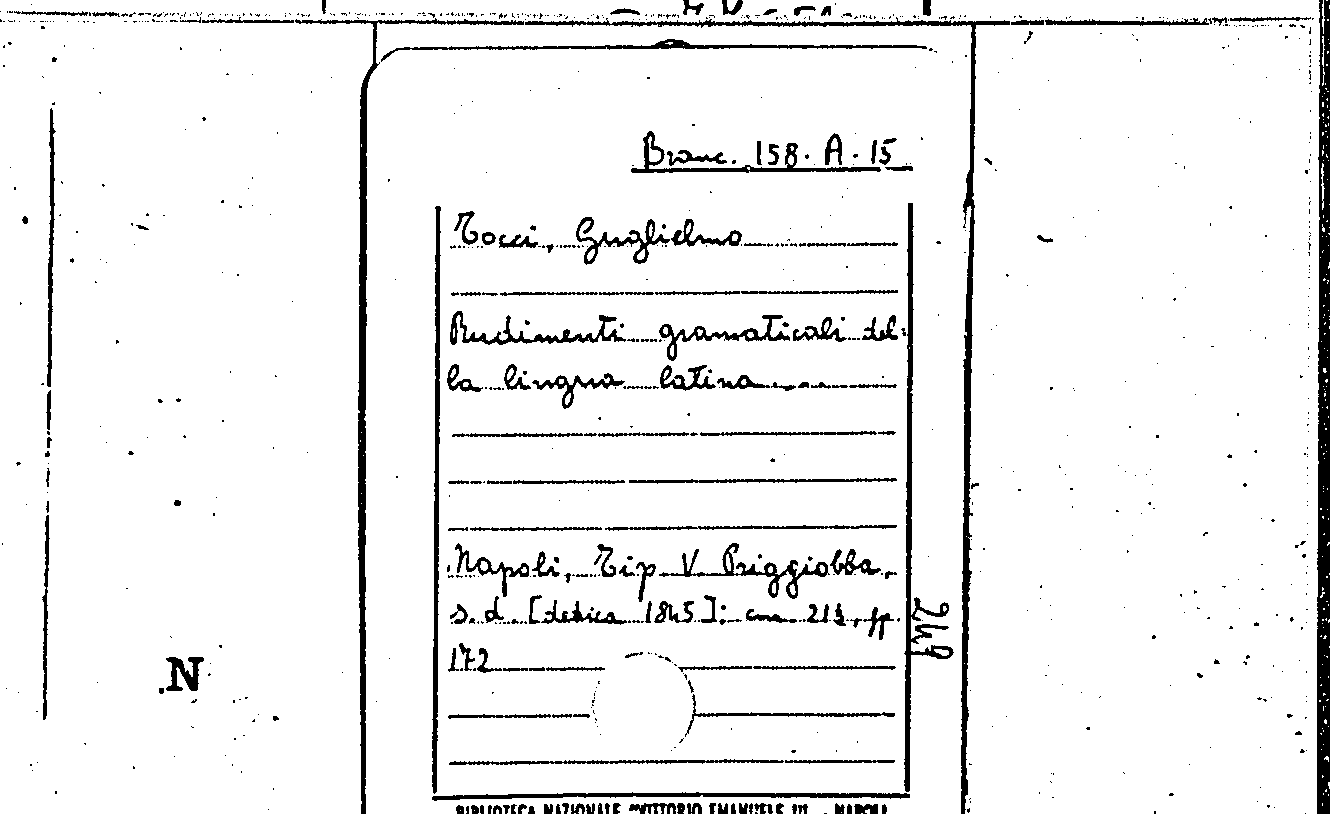 Branc. 158. A. 15
Tocci, Guglielmo
Rudimenti gramaticali del=
la lingua latina....
Napoli, Tip V. Priggiobba,
s. d. [dedica 1845]; cm. 21½, pp.
172
249
N
BIBLIOTECA NAZIONALE "VITTORIO EMANUELE III" - NAPOLI